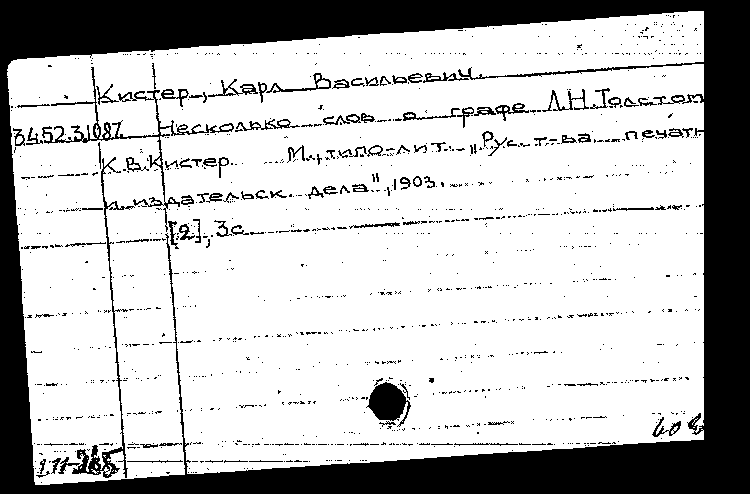 Кистер, Карл Васильевич.
34.52.3.1087. Несколько слов о графе Л.Н.Толстом
К.В.Кистер. М., типо-лит. „Рус. т-ва печатн
и издательск. дела", 1903.
[2], 3 с.